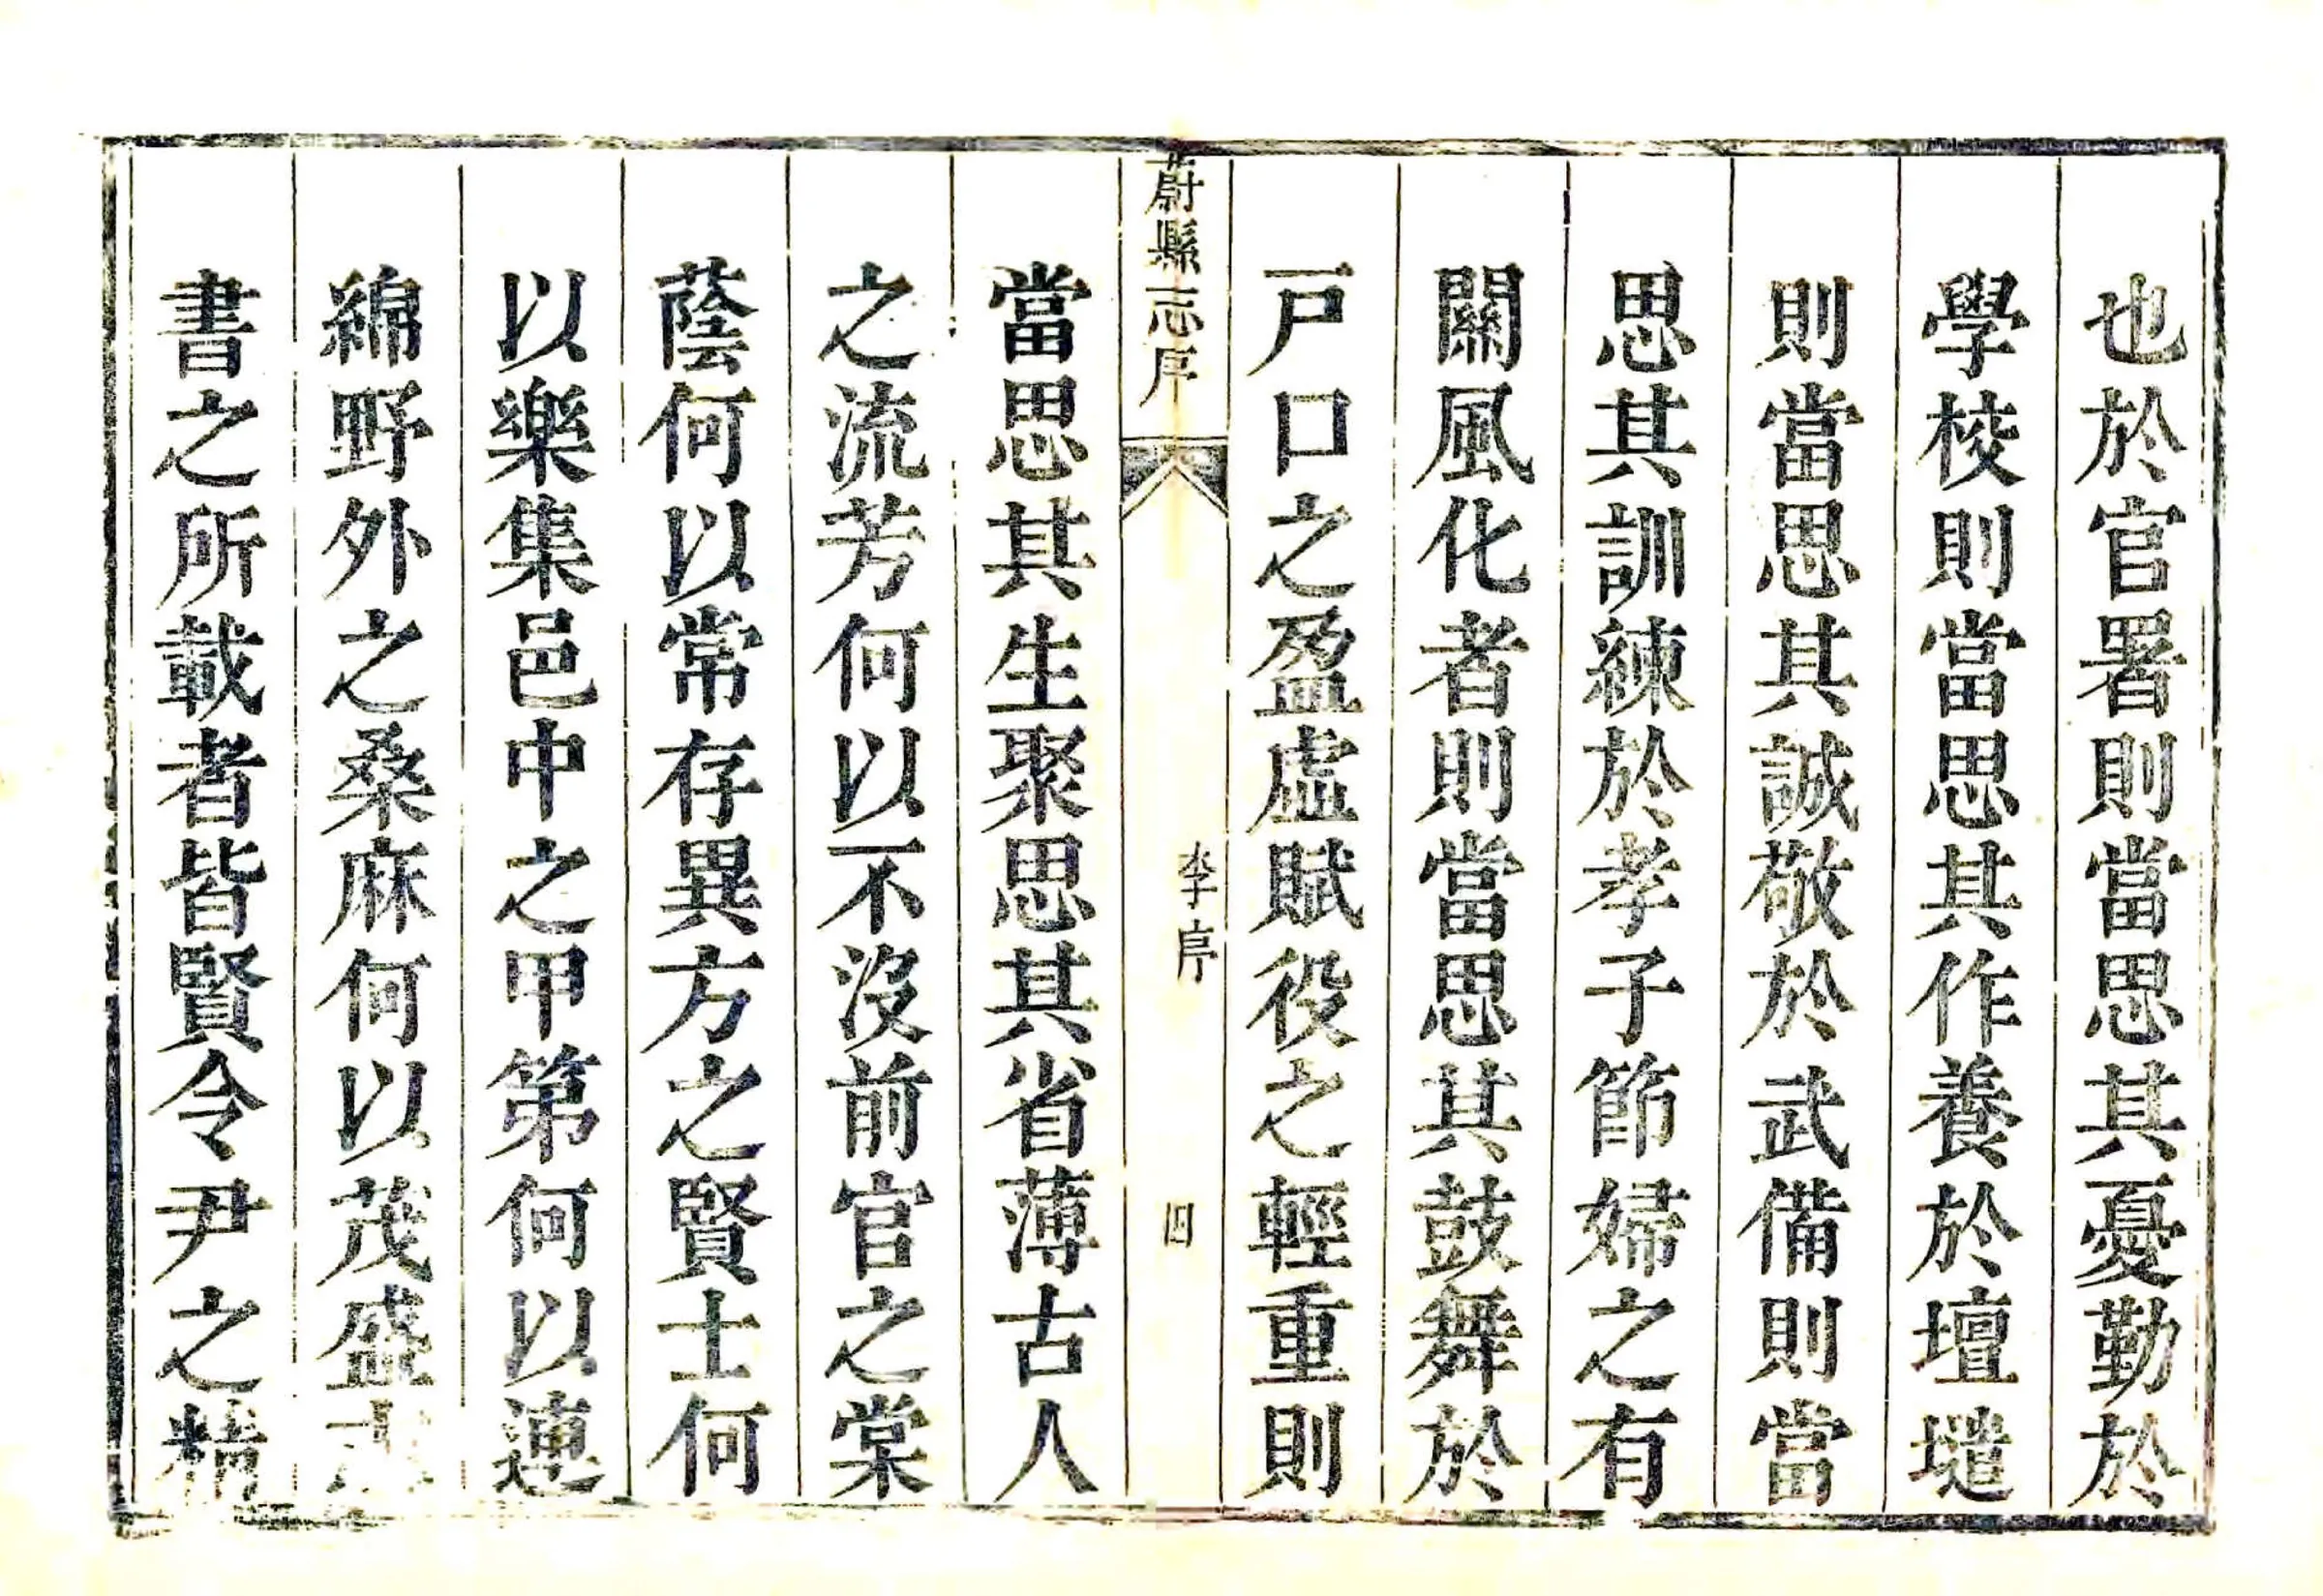 也於官署則當思其憂勤於
學校則當思其作養於壇壝
則當思其誠敬於武備則當
思其訓練於孝子節婦之有
關風化者則當思其鼓舞於
戸口之盈虛賦役之輕重則
蔚縣志序
李序
四
當思其生聚思其省薄古人
之流芳何以不沒前官之棠
蔭何以常存異方之賢士何
以樂集邑中之甲第何以連
綿野外之桑麻何以茂盛
書之所載者皆賢令尹之精